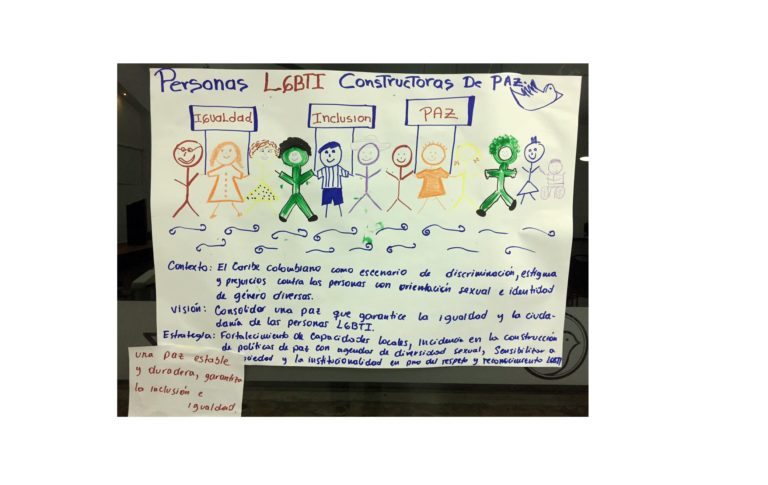 Personas LGBTI Constructoras De PAZ.
Igualdad
Inclusion
PAZ
Contexto: El Caribe colombiano como escenario de discriminación, estigma
y prejuicios contra las personas con orientación sexual e identidad
de género diversas.
Visión: Consolidar una paz que garantice la igualdad y la ciuda-
danía de las personas LGBTI.
Estrategia: Fortalecimiento de capacidades locales, incidencia en la construcción
de políticas de paz con agendas de diversidad sexual, Sensibilizar a
y la institucionalidad en pro del respeto y reconocimiento LGBTI
una paz estable
y duradera, garantiza
la inclusión e
igualdad